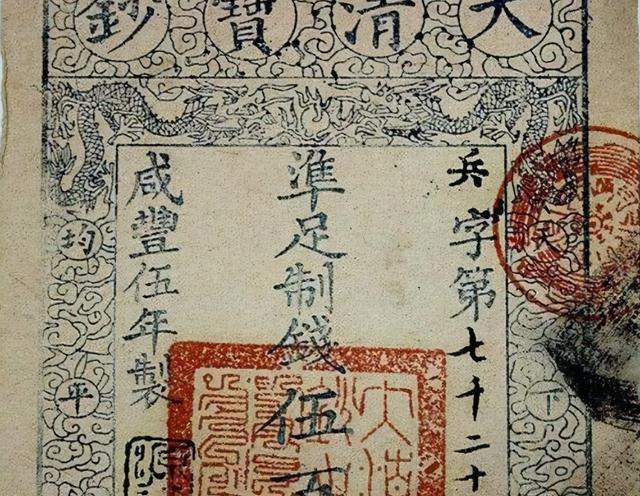 大清寶鈔
天下
兵字第七千二十
準足制錢伍百
咸豐伍年製
均平